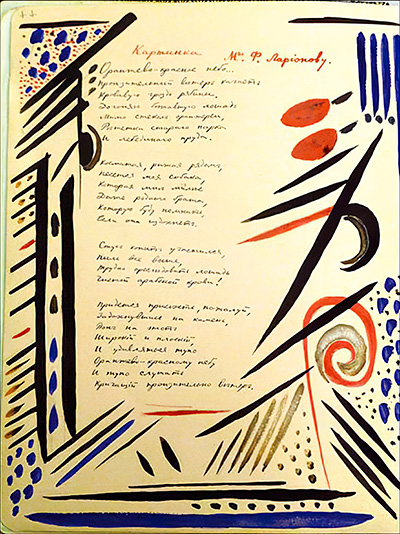 Картинка М. Ф. Ларіонову.
Оранжево-красное небо...
Пронзительный ветер качает
Кровавую гроздь рябины.
Догоняю бежавшую лошадь
Мимо стекол оранжереи,
Решетки старого парка
И лебединого пруда.
Косматая, рыжая, рядом,
Несется моя собака,
Которая мне милее
Даже родного брата,
Которую буду помнить,
Если она издохнет.
Стук копыт участился,
Пыль все выше,
Трудно преследовать лошадь
Чистой арабской крови!
Придется присесть, пожалуй,
Задохнувшись на камень,
на этот
Широкий и плоский,
И удивляться тупо
Оранжево-красному небу,
И тупо слушать
Кричащий пронзительно ветер.